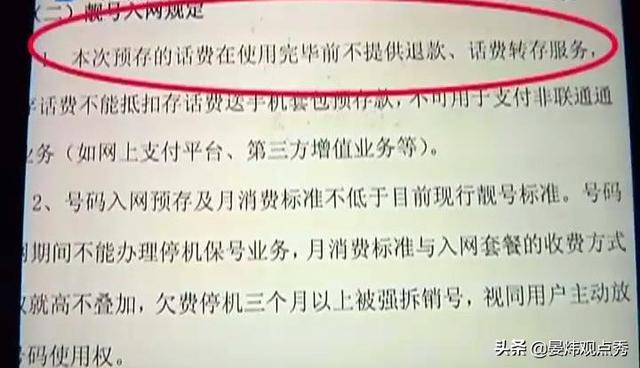 (二)靓号入网规定
1、本次预存的话费在使用完毕前不提供退款、话费转存服务,
话费不能抵扣存话费送手机套包预存款,不可用于支付非联通通
业务(如网上支付平台、第三方增值业务等)。
2、号码入网预存及月消费标准不低于目前现行靓号标准。号码
期间不能办理停机保号业务,月消费标准与入网套餐的收费方式
就高不叠加,欠费停机三个月以上被强拆销号,视同用户主动放
号码使用权。
头条 @晏炜观点秀